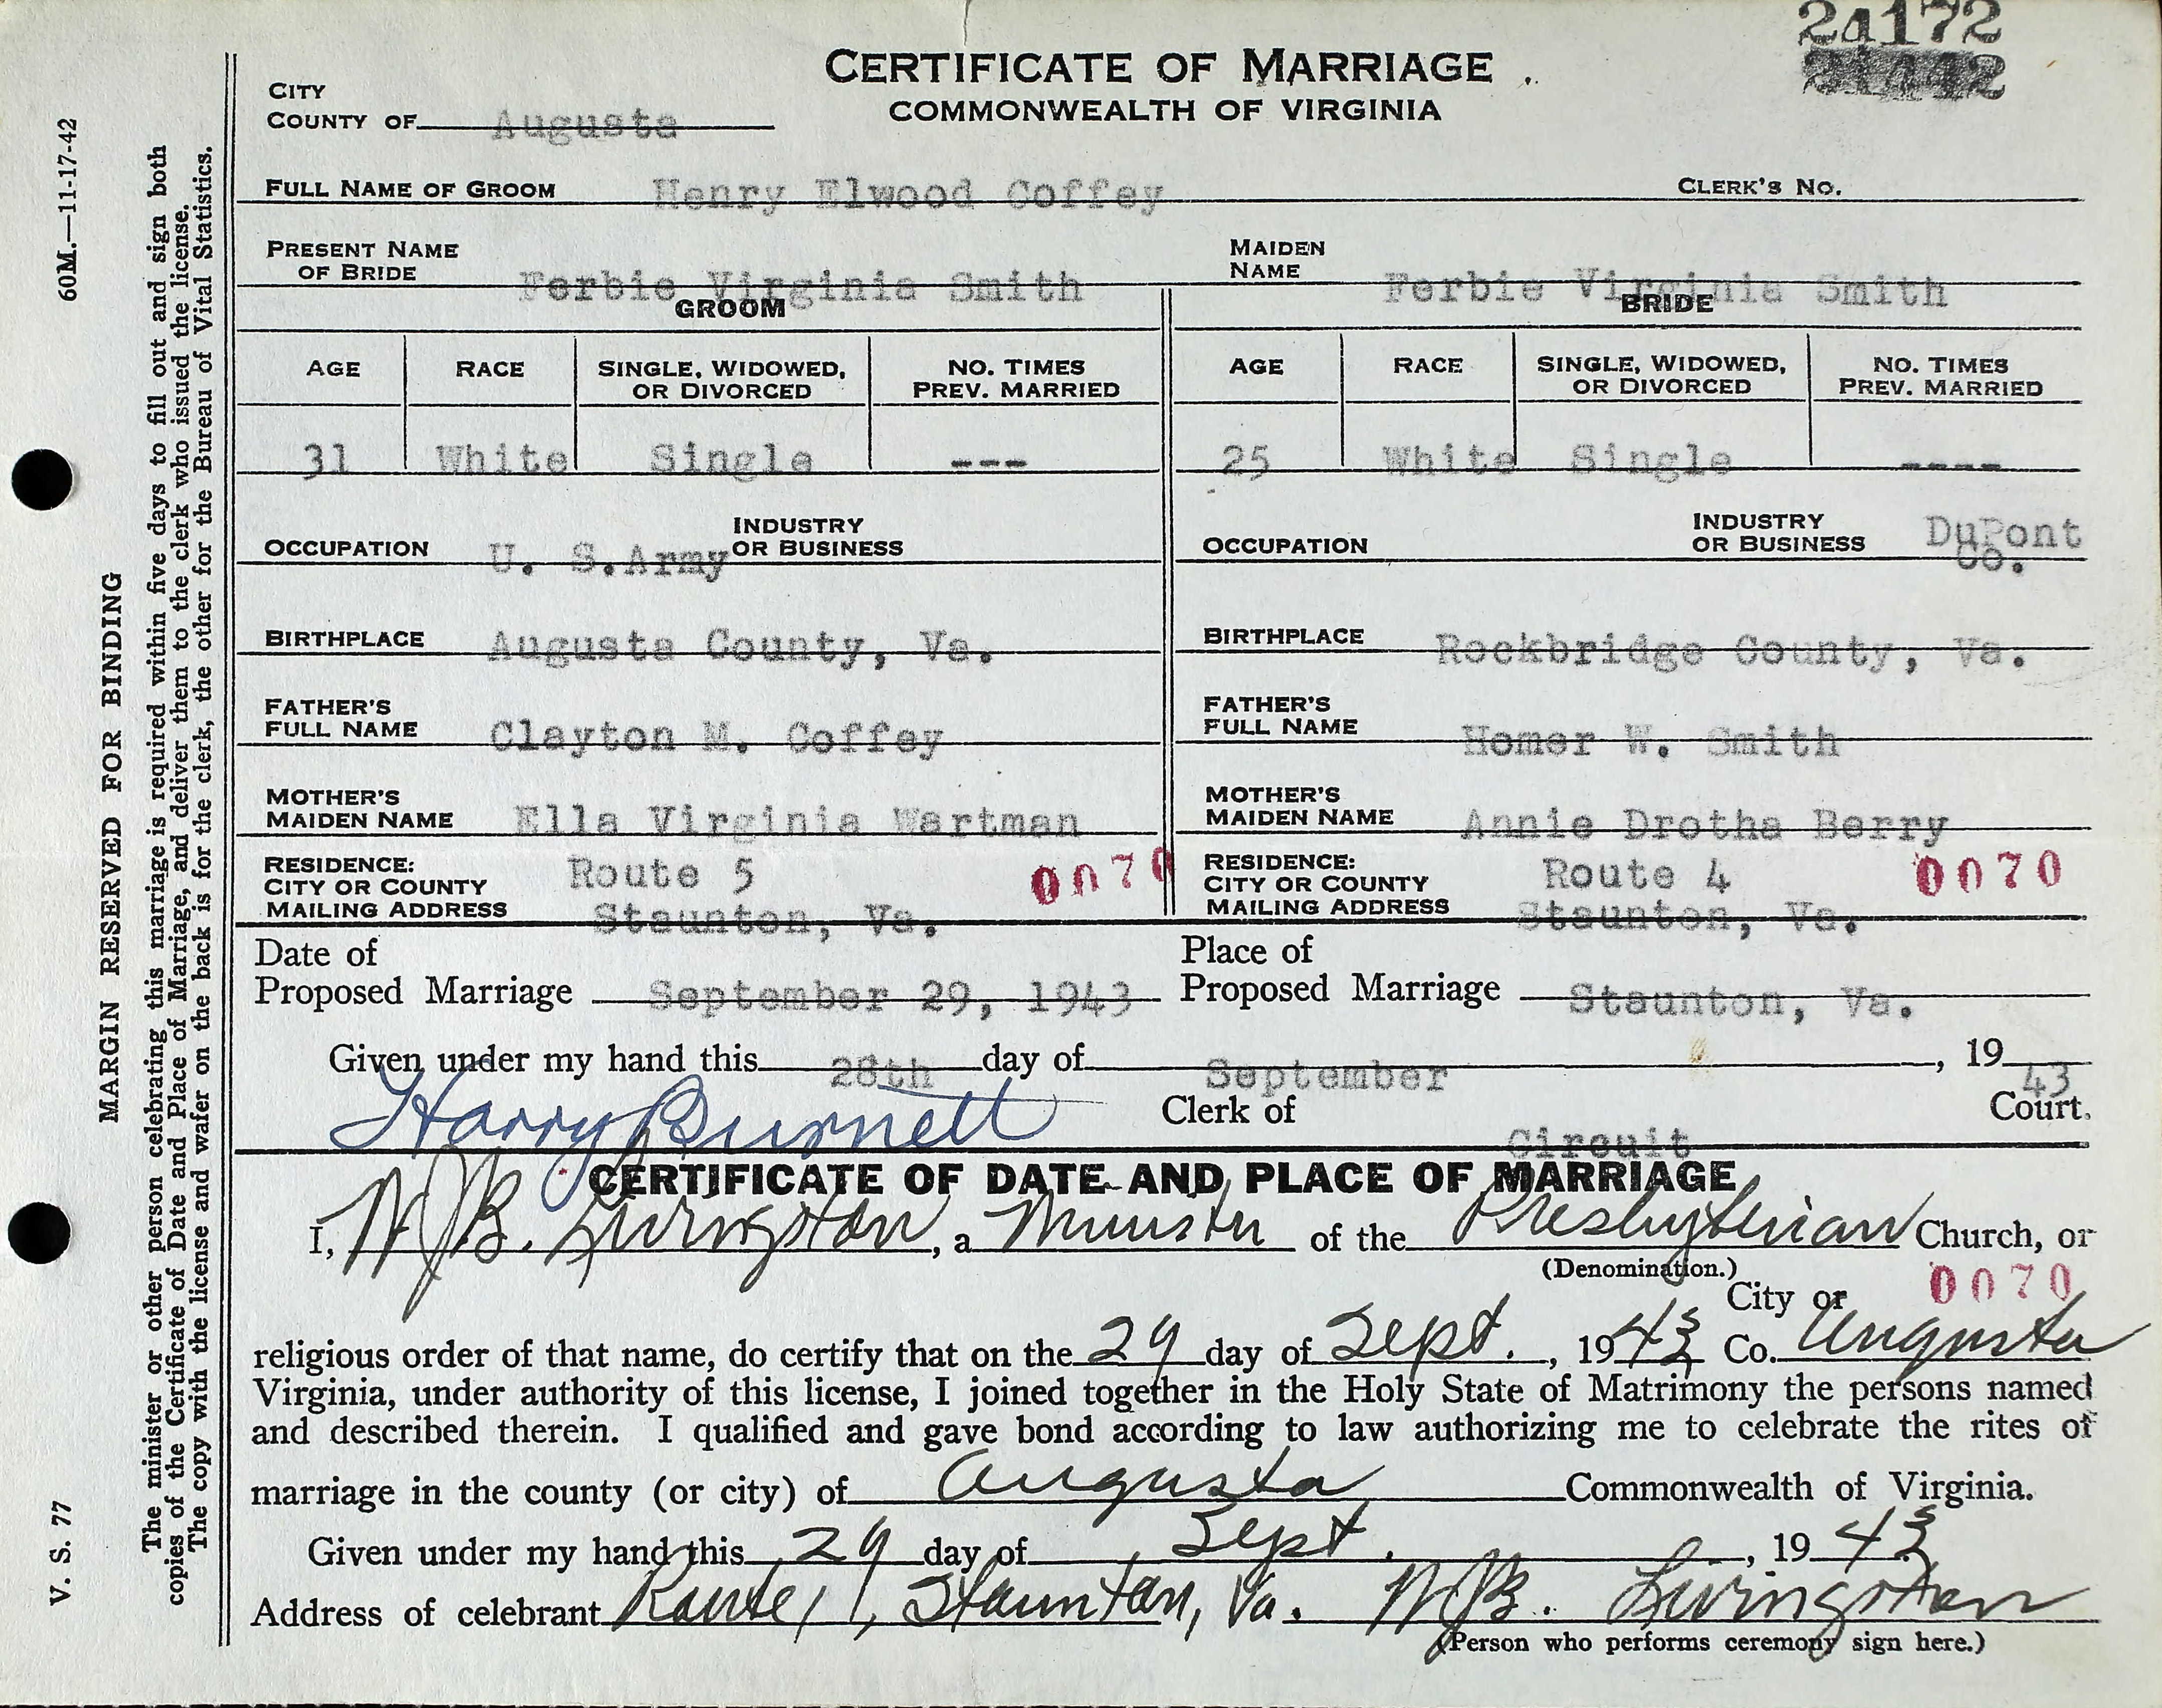 24172
CERTIFICATE OF MARRIAGE
COMMONWEALTH OF VIRGINIA
CITY
COUNTY OF Augusta
FULL NAME OF GROOM Henry Elwood Coffey CLERK'S NO.
PRESENT NAME OF BRIDE Ferbie Virginia Smith MAIDEN NAME Ferbie Virginia Smith
GROOM BRIDE
AGE RACE SINGLE, WIDOWED, OR DIVORCED NO. TIMES PREV. MARRIED AGE RACE SINGLE, WIDOWED, OR DIVORCED NO. TIMES PREV. MARRIED
31 White Single --- 25 White Single ----
OCCUPATION U. S.Army INDUSTRY OR BUSINESS OCCUPATION INDUSTRY OR BUSINESS DuPont Co.
BIRTHPLACE Augusta County, Va. BIRTHPLACE Rockbridge County, Va.
FATHER'S FULL NAME Clayton M. Coffey FATHER'S FULL NAME Homer W. Smith
MOTHER'S MAIDEN NAME Ella Virginia Wartman MOTHER'S MAIDEN NAME Annie Drotha Berry
RESIDENCE: CITY OR COUNTY MAILING ADDRESS Route 5 Staunton, Va. 0070 RESIDENCE: CITY OR COUNTY MAILING ADDRESS Route 4 Staunton, Va. 0070
Date of Proposed Marriage September 29, 1943 Place of Proposed Marriage Staunton, Va.
Given under my hand this 28th day of September, 1943
Harry Burnett Clerk of Circuit Court.
CERTIFICATE OF DATE AND PLACE OF MARRIAGE
I, W.J.B. Livingston, a Minister of the Presbyterian Church, or
(Denomination.)
City or 0070
religious order of that name, do certify that on the 29 day of Sept., 1943 Co. Augusta
Virginia, under authority of this license, I joined together in the Holy State of Matrimony the persons named
and described therein. I qualified and gave bond according to law authorizing me to celebrate the rites of
marriage in the county (or city) of Augusta Commonwealth of Virginia.
Given under my hand this 29 day of Sept., 1943
Address of celebrant Route 1, Staunton, Va. W.J.B. Livingston
(Person who performs ceremony sign here.)
60M.—11-17-42
V. S. 77
MARGIN RESERVED FOR BINDING
The minister or other person celebrating this marriage is required within five days to fill out and sign both
copies of the Certificate of Date and Place of Marriage, and deliver them to the clerk who issued the license.
The copy with the license and wafer on the back is for the clerk, the other for the Bureau of Vital Statistics.